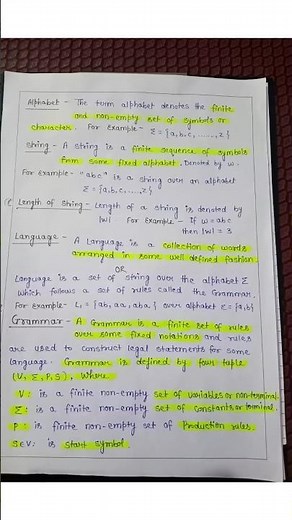 Alphabet - The term alphabet denotes the finite
and non-empty set of symbols or
characters. For Example - Σ = {a,b,c,.....,z}
String - A string is a finite sequence of symbols
from some fixed alphabet. Denoted by w.
For Example - "abc" is a string over an alphabet
Σ = {a,b,c,.....,z}
Length of String - Length of a string is denoted by
|w| For Example - If w = abc
then |w| = 3
Language - A Language is a collection of words
arranged in some well defined fashion.
OR
Language is a set of string over the alphabet Σ
which follows a set of rules called the Grammar.
For Example - L₁ = {ab, aa, aba,} over alphabet Σ = {a,b}
Grammar - A Grammar is a finite set of rules
over some fixed notations and rules
are used to construct legal statements for some
language. Grammar is defined by four tuple
(V, Σ, P, S), where
V : is a finite non-empty set of variables or non-terminal.
Σ : is a finite non-empty set of constants or terminal.
P : is finite non-empty set of Production rules.
S∈V: is start symbol.